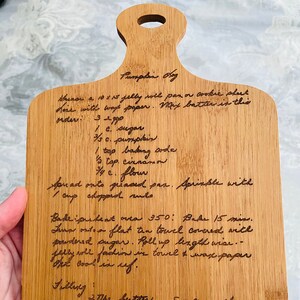 Pumpkin Log
Grease a 10 x 15 jelly roll pan or cookie sheet
line with wax paper. Mix batter in this
order: 3 egg
1 c. sugar
2/3 c. pumpkin
1 tsp baking soda
1/2 tsp cinnamon
3/4 c. flour
Spread onto greased pan. Sprinkle with
1 cup chopped nuts
Bake preheat oven 350: Bake 15 mins.
Turn out on flat tea towel covered with
powdered sugar. Roll up length wise --
jelly roll fashion in towel & wax paper
Let cool in ref.
Filling: